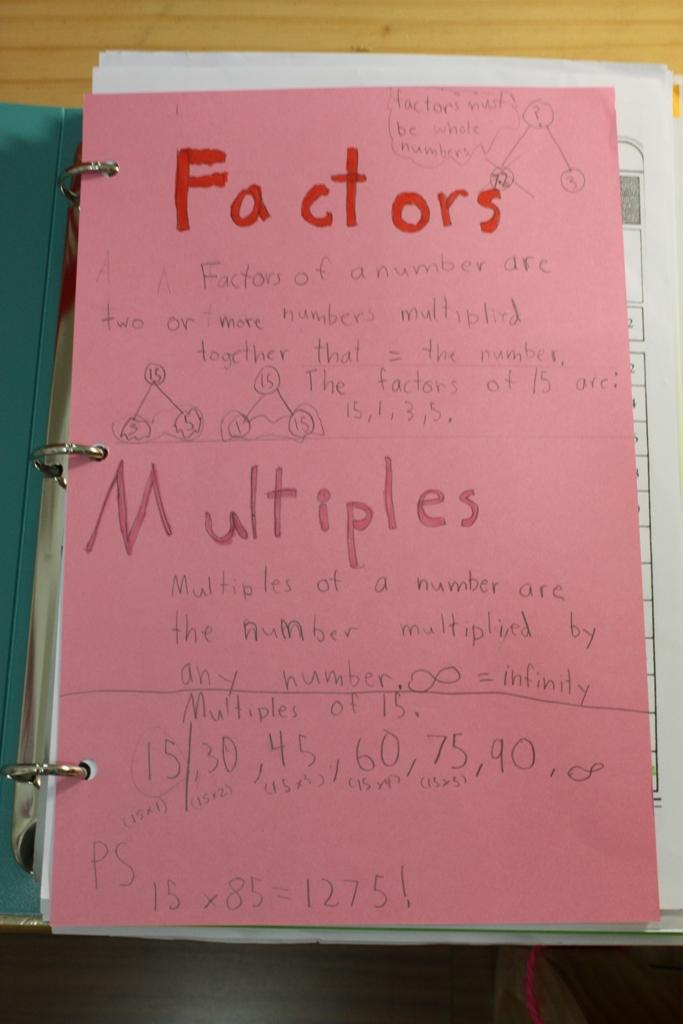 factors must
be whole
numbers
?
7.2
3
Factors
Factors of a number are
two or more numbers multiplied
together that = the number.
15
15
The factors of 15 are:
3
5
1
15
15, 1, 3, 5.
Multiples
Multiples of a number are
the number multiplijed by
any number. ∞ = infinity
Multiples of 15.
15, 30, 45, 60, 75, 90, ∞
(15x1) (15x2) (15x3) (15x4) (15x5)
PS
15 x 85 = 1275!